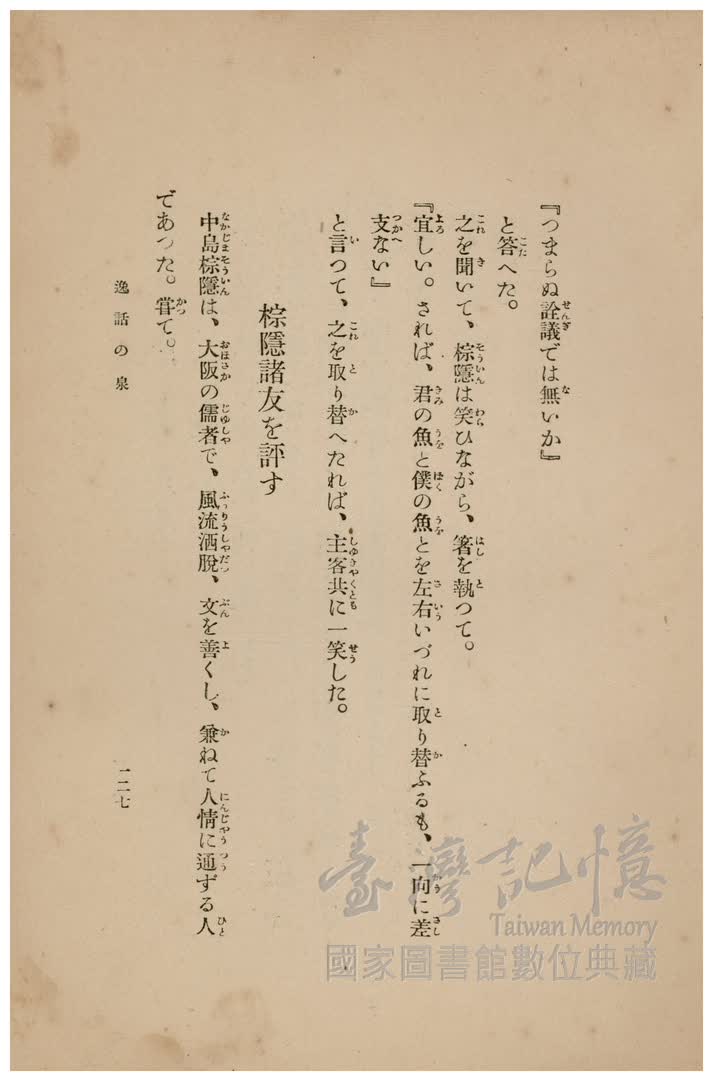 『つまらぬ詮議では無いか』
と答へた。
之を聞いて、棕隱は笑ひながら、箸を執つて。
『宜しい。されば、君の魚と僕の魚とを左右いづれに取り替ふるも、一向に差
支ない』
と言つて、之を取り替へたれば、主客共に一笑した。
棕隱諸友を評す
中島棕隱は、大阪の儒者で、風流洒脫、文を善くし、兼ねて人情に通ずる人
であつた。甞て。
逸話の泉
一二七
臺灣記憶
Taiwan Memory
國家圖書館數位典藏